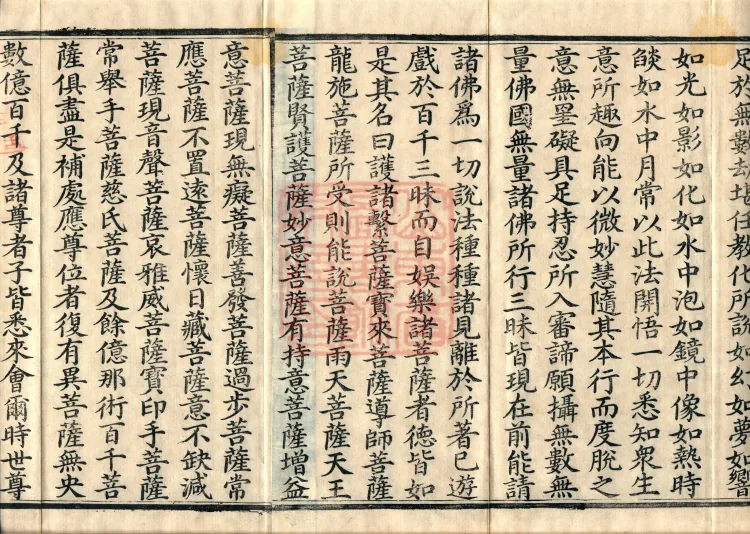 足於無數劫堪任教化所說如幻如夢如響
如光如影如化如水中泡如鏡中像如熱時
燄如水中月常以此法開悟一切悉知眾生
意所趣向能以微妙慧隨其本行而度脫之
意無罣礙具足持忍所入審諦願攝無數無
量佛國無量諸佛所行三昧皆現在前能請
諸佛爲一切說法種種諸見離於所著已遊
戲於百千三昧而自娛樂諸菩薩者德皆如
是其名曰護諸繫菩薩寶來菩薩導師菩薩
龍施菩薩所受則能說菩薩雨天菩薩天王
菩薩賢護菩薩妙意菩薩有持意菩薩增益
意菩薩現無癡菩薩善發菩薩過步菩薩常
應菩薩不置遠菩薩懷日藏菩薩意不缺減
菩薩現音聲菩薩哀雅威菩薩寶印手菩薩
常舉手菩薩慈氏菩薩及餘億那術百千菩
薩俱盡是補處應尊位者復有異菩薩無央
數億百千及諸尊者子皆悉來會爾時世尊